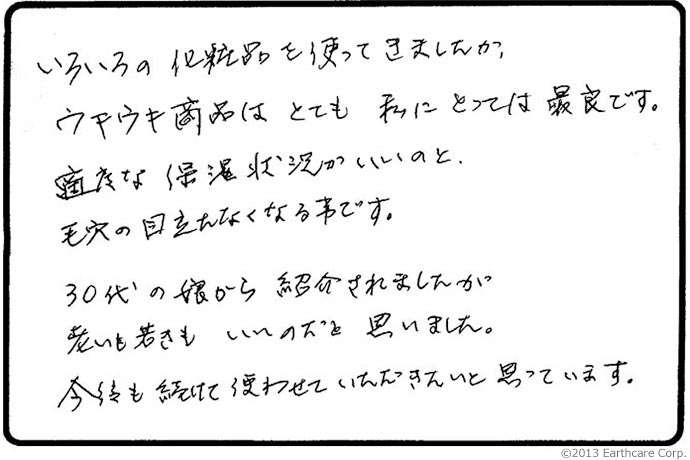 いろいろの化粧品を使ってきましたが、
ウキウキ商品はとても私にとっては最良です。
適度な保湿状況がいいのと、
毛穴の目立たなくなる事です。
30代の娘から紹介されましたが
老いも若きもいいのだと思いました。
今後も続けて使わせていただきたいと思っています。
©2013 Earthcare Corp.